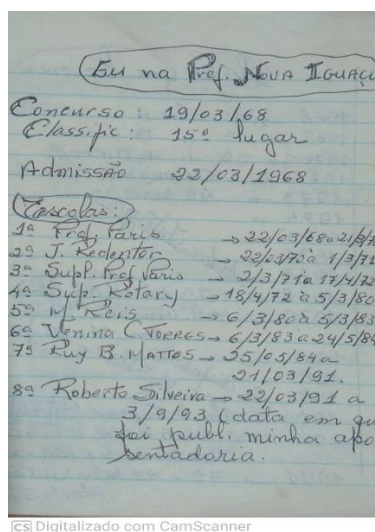 Eu na Pref. NOVA IGUAÇU
Concurso: 19/03/68
Classific: 15º lugar
Admissão 22/03/1968
Escolas:
1ª Prof. Paris → 22/03/68 a 21/3/7
2ª J. Redentor → 22/03/70 a 1/3/71
3ª Supl. Prof Paris → 2/3/71 a 17/4/72
4ª Sup. Rotary → 18/4/72 a 5/3/80
5ª M. Reis → 6/3/80 a 5/3/83
6ª Venina C. TORRES → 6/3/83 a 24/5/84
7ª Ruy B. MATTOS → 25/05/84 a
21/03/91.
8ª Roberto Silveira → 22/03/91 a
3/9/93 (data em qu
foi publ. minha apo
sentadoria.
CS Digitalizado com CamScanner